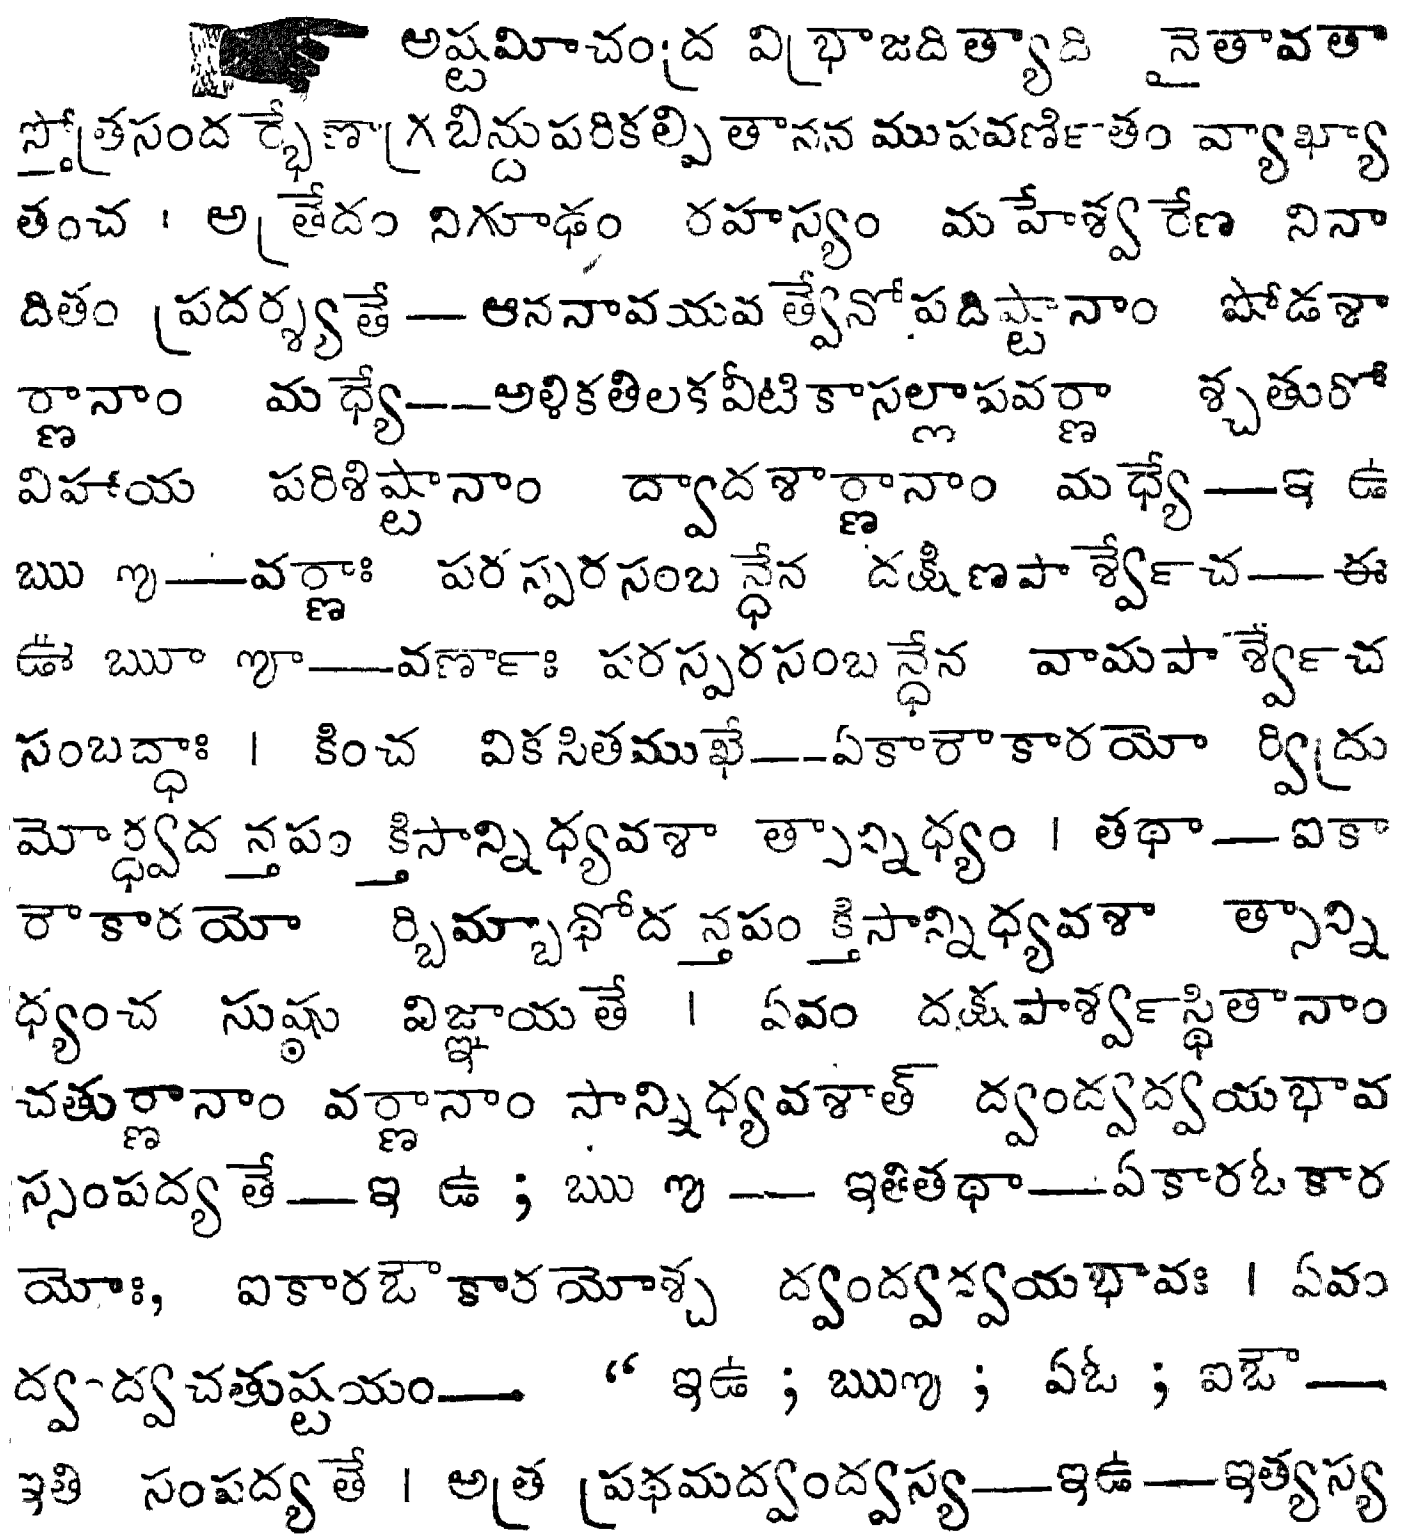 అష్టమీచంద్ర విభ్రాజదిత్యాది నైతావతా
స్తోత్రసందర్భేణాగ్రబిన్దుపరికల్పితానన ముపవర్ణితం వ్యాఖ్యా
తంచ । అత్రేదం నిగూఢం రహస్యం మహేశ్వరేణ నినా
దితం ప్రదర్శ్యతే — ఆననావయవత్వేనోపదిష్టానాం షోడశా
ర్ణానాం మధ్యే——అళికతిలకవీటికాసల్లాపవర్ణా శ్చతురో
విహాయ పరిశిష్టానాం ద్వాదశార్ణానాం మధ్యే—ఇ ఉ
ఋ ఌ—వర్ణాః పరస్పరసంబన్ధేన దక్షిణపార్శ్వేచ—ఈ
ఊ ౠ ౡ—వర్ణాః పరస్పరసంబన్ధేన వామపార్శ్వేచ
సంబద్ధాః । కించ వికసితముఖే——ఏకారౌకారయో ర్విద్రు
మోర్ధ్వదన్తపంక్తిసాన్నిధ్యవశా త్సాన్నిధ్యం । తథా—ఐకా
రౌకారయో ర్బిమ్బాధోదన్తపంక్తిసాన్నిధ్యవశా త్సాన్ని
ధ్యంచ సుష్ఠు విజ్ఞాయతే । ఏవం దక్షపార్శ్వస్థితానాం
చతుర్ణానాం వర్ణానాం సాన్నిధ్యవశాత్ ద్వంద్వద్వయభావ
స్సంపద్యతే—ఇ ఉ ; ఋ ఌ —— ఇతితథా—ఏకారఓకార
యోః, ఐకారఔకారయోశ్చ ద్వంద్వద్వయభావః । ఏవం
ద్వంద్వచతుష్టయం— “ ఇఉ ; ఋఌ ; ఏఓ ; ఐఔ—
ఇతి సంపద్యతే । అత్ర ప్రథమద్వంద్వస్య—ఇఉ—ఇత్యస్య